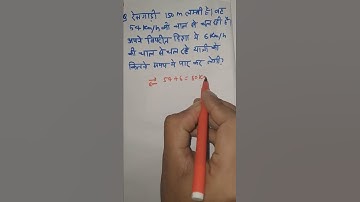 रेलगाड़ी 150 m लम्बी है। वह
54 Km/h की चाल से चल रही है।
अपने विपरीत दिशा मे 6 Km/h
की चाल से चल रहे यात्री को
कितने समय मे पार कर लेगी?
54 + 6 = 60 K